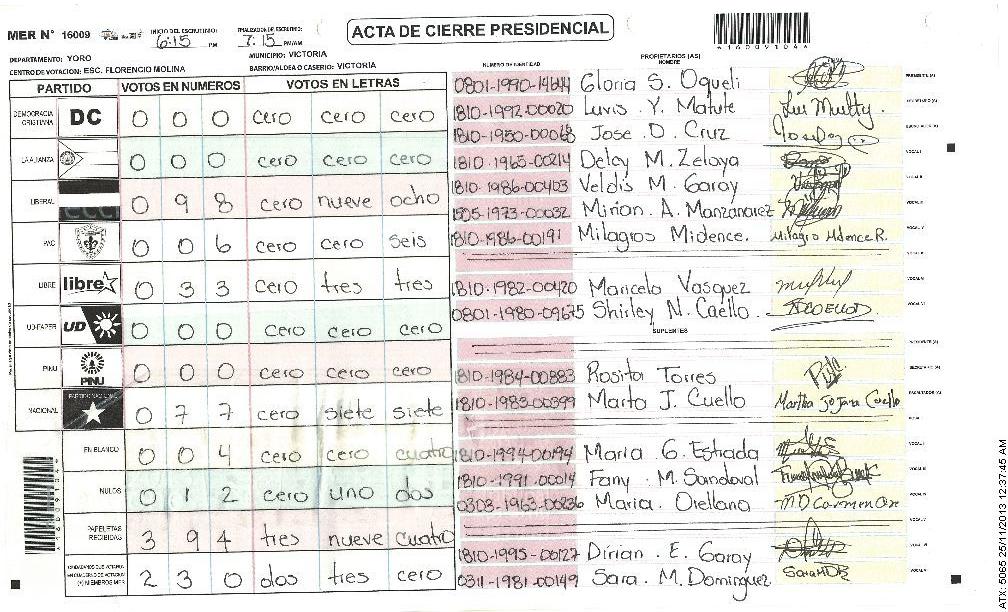 MER N° 16009
INICIO DEL ESCRUTINIO: 6:15 PM
FINALIZADOR DE ESCRUTINIO: 7:15 PM/AM
ACTA DE CIERRE PRESIDENCIAL
DEPARTAMENTO: YORO
MUNICIPIO: VICTORIA
CENTRO DE VOTACION: ESC. FLORENCIO MOLINA
BARRIO/ALDEA O CASERIO: VICTORIA
PARTIDO VOTOS EN NUMEROS VOTOS EN LETRAS
DEMOCRACIA CRISTIANA DC 0 0 0 cero cero cero
LA ALIANZA 0 0 0 cero cero cero
LIBERAL 0 9 8 cero nueve ocho
PAC 0 0 6 cero cero seis
LIBRE libre 0 3 3 cero tres tres
UD-FAPER UD 0 0 0 cero cero cero
PINU PINU 0 0 0 cero cero cero
NACIONAL PARTIDO NACIONAL 0 7 7 cero siete siete
EN BLANCO 0 0 4 cero cero cuatro
NULOS 0 1 2 cero uno dos
PAPELETAS RECIBIDAS 3 9 4 tres nueve cuatro
2 3 0 dos tres cero
NUMERO DE IDENTIDAD
PROPIETARIOS (AS)
NOMBRE
0801-1990-14644 Gloria S. Oqueli
1810-1992-00020 Luvis Y. Matute
1810-1950-00068 Jose D. Cruz
1810-1965-00214 Delcy M. Zelaya
1810-1986-00403 Veldis M. Garay
1505-1973-00032 Mirian. A. Manzanarez
1810-1986-00191 Milagros Midence.
1810-1982-00420 Maricela Vasquez
0801-1980-09675 Shirley N. Caello
SUPLENTES
1810-1984-00883 Rosita Torres
1810-1983-00399 Marta J. Cuello
1810-1994-00194 Maria G. Estrada
1810-1991-00014 Fany M. Sandoval
0303-1963-00236 Maria Orellana
1810-1995-00127 Dirian. E. Garay
0311-1981-00149 Sara. M. Dominguez
*16009104*
ATX: 5065 25/11/2013 12:37:45 AM